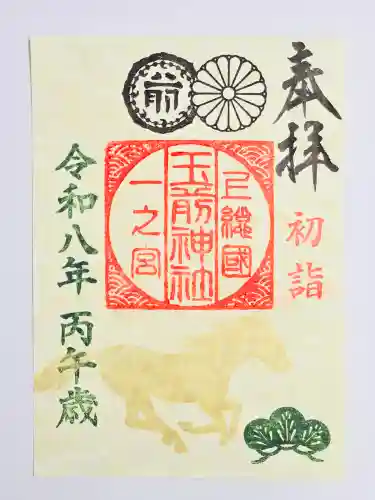 奉拝
初詣
前
上総國
玉前神社
一之宮
令和八年 丙午歳